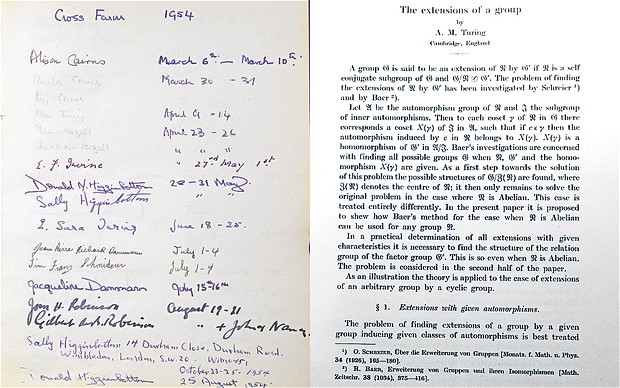 Cross Farm 1954
Alison Cairns March 6th — March 10th.
March 30 - 31
April 9 - 14
April 23 - 26
" "
E. F. Irvine " 27th May 1st
Donald N. Higginbottom 28-31 May
Sally Higginbottom "
E. Sara Turing June 18 - 25.
Jean Pierre Richard Dammann July 1-4
July 1-4
Jacqueline Dammann July 15-16th
Joan H. Robinson August 19-21
Gilbert de B. Robinson " + John & Nancy
Sally Higginbottom 14 Durham Close, Durham Road,
Wimbledon, London, S.W.20.
October 23-25. 1954
Donald Higginbottom 25 August 1954.
The extensions of a group
by
A. M. Turing
Cambridge, England
A group 𝔊 is said to be an extension of 𝔑 by 𝔊′ if 𝔑 is a self
conjugate subgroup of 𝔊 and 𝔊/𝔑 ≅ 𝔊′. The problem of finding
the extensions of 𝔑 by 𝔊′ has been investigated by Schreier ¹)
and by Baer ²).
Let 𝔄 be the automorphism group of 𝔑 and ℑ the subgroup
of inner automorphisms. Then to each coset γ of 𝔑 in 𝔊 there
corresponds a coset X(γ) of ℑ in 𝔄, such that if c ε γ then the
automorphism induced by c in 𝔑 belongs to X(γ). X(γ) is a
homomorphism of 𝔊′ in 𝔄/ℑ. Baer's investigations are concerned
with finding all possible groups 𝔊 when 𝔑, 𝔊′ and the homo-
morphism X(γ) are given. As a first step towards the solution
of this problem the possible structures of 𝔊/ℨ(𝔑) are found, where
ℨ(𝔑) denotes the centre of 𝔑; it then only remains to solve the
original problem in the case where 𝔑 is Abelian. This case is
treated entirely differently. In the present paper it is proposed
to shew how Baer's method for the case when 𝔑 is Abelian
can be used for any group 𝔑.
In a practical determination of all extensions with given
characteristics it is necessary to find the structure of the relation
group of the factor group 𝔊′. This is so even when 𝔑 is Abelian.
The problem is considered in the second half of the paper.
As an illustration the theory is applied to the case of extensions
of an arbitrary group by a cyclic group.
§ 1. Extensions with given automorphisms.
The problem of finding extensions of a group by a given
group inducing given classes of automorphisms is best treated
¹) O. SCHREIER, Über die Erweiterung von Gruppen [Monats. f. Math. u. Phys.
34 (1926), 165—180].
²) R. BAER, Erweiterung von Gruppen und ihren Isomorphismen [Math.
Zeitschr. 38 (1934), 375—416].